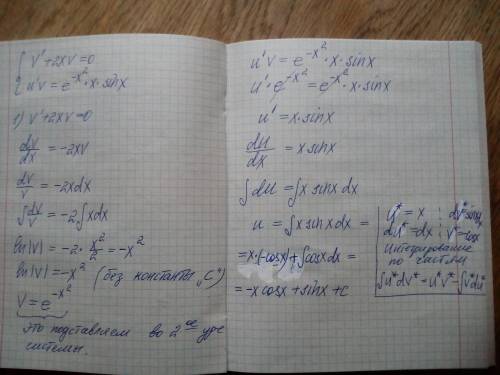 { v' + 2xv = 0
u'v = e^{-x²} · x · sinx
1) v' + 2xv = 0
dv/dx = -2xv
dv/v = -2xdx
∫dv/v = -2∫xdx
ln|v| = -2 · x²/2 = -x²
ln|v| = -x² (без константы "C")
v = e^{-x²}
это подставляем во 2ое ур-е
системы.
u'v = e^{-x²} · x · sinx
u' · e^{-x²} = e^{-x²} · x · sinx
u' = x · sinx
du/dx = x sinx
∫du = ∫x sinx dx
u = ∫x sinx dx =
= x · (-cosx) + ∫cosx dx =
= -x cosx + sinx + c
u* = x ; dv* = sinx
du* = dx ; v* = -cosx
интегрирование
по частям
∫u*dv* = u*v* - ∫v*du*